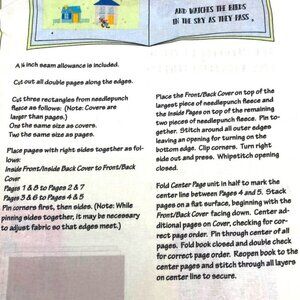 AND WATCHES THE BIRDS
IN THE SKY AS THEY PASS.
A ¼ inch seam allowance is included.
Cut out all double pages along the edges.
Cut three rectangles from needlepunch
fleece as follows: (Note: Covers are
larger than pages.)
One the same size as covers.
Two the same size as pages.
Place pages with right sides together as fol-
lows:
Inside Front/Inside Back Cover to Front/Back
Cover
Pages 1 & 8 to Pages 2 & 7
Pages 3 & 6 to Pages 4 & 5
Pin corners first, then sides. (Note: While
pinning sides together, it may be necessary
to adjust fabric so that edges meet.)
Place the Front/Back Cover on top of the
largest piece of needlepunch fleece and
the Inside Pages on top of the remaining
two pieces of needlepunch fleece. Pin to-
gether. Stitch around all outer edges
leaving an opening for turning on the
bottom edge. Clip corners. Turn right
side out and press. Whipstitch opening
closed.
Fold Center Page unit in half to mark the
center line between Pages 4 and 5. Stack
pages on a flat surface, beginning with the
Front/Back Cover facing down. Center ad-
ditional pages on Cover, checking for cor-
rect page order. Pin through center of all
pages. Fold book closed and double check
for correct page order. Reopen book to the
center pages and stitch through all layers
on center line to secure.